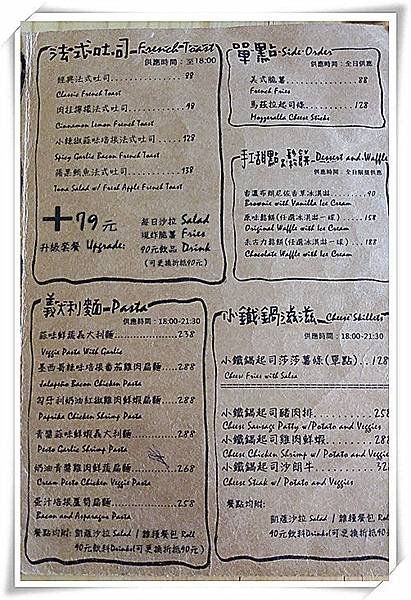 法式吐司 French Toast
供應時間：至18:00
經典法式吐司 88
Classic French Toast
肉桂檸檬法式吐司 98
Cinnamon Lemon French Toast
小辣椒蒜味培根法式吐司 128
Spicy Garlic Bacon French Toast
蘋果鮪魚法式吐司 138
Tuna Salad w/ Fresh Apple French Toast
+79元
升級套餐 Upgrade:
每日沙拉 Salad
現炸脆薯 Fries
90元飲品 Drink
(可更換折抵90元)
單點 Side Order
供應時間：全日供應
美式脆薯 88
French Fries
馬茲拉起司條 128
Mozzeralla Cheese Sticks
手工甜點&鬆餅 Dessert and Waffle
供應時間：全日限量供應
香濃布朗尼佐香草冰淇淋 90
Brownie with Vanilla Ice Cream
原味鬆餅(任選冰淇淋一球) 158
Original Waffle with Ice Cream
朱古力鬆餅(任選冰淇淋一球) 188
Chocolate Waffle with Ice Cream
義大利麵 Pasta
供應時間：18:00-21:30
蒜味鮮蔬義大利麵 238
Veggie Pasta With Garlic
墨西哥辣味培根番茄雞肉扁麵 288
Jalapeño Bacon Chicken Pasta
匈牙利奶油紅椒雞肉鮮蝦扁麵 288
Paprika Chicken Shrimp Pasta
青醬蒜味鮮蝦義大利麵 288
Pesto Garlic Shrimp Pasta
奶油青醬雞肉鮮蔬扁麵 268
Cream Pesto Chicken Veggie Pasta
蛋汁培根蘆筍扁麵 258
Bacon and Asparagus Pasta
餐點均附：
凱薩沙拉 Salad | 雜糧餐包 Roll
90元飲料Drinks(可更換折抵90元)
小鐵鍋滋滋 Cheese Skillets
供應時間：18:00-21:30
小鐵鍋起司莎莎薯條(單點) 128
Cheese Fries with Salsa
小鐵鍋起司豬肉排 258
Cheese Sausage Patty w/Potato and Veggies
小鐵鍋起司雞肉鮮蝦 288
Cheese Chicken Shrimp w/Potato and Veggies
小鐵鍋起司沙朗牛 32
Cheese Steak w/ Potato and Veggies
餐點均附：
凱薩沙拉 Salad | 雜糧餐包 Roll
90元飲料Drinks(可更換折抵90元)